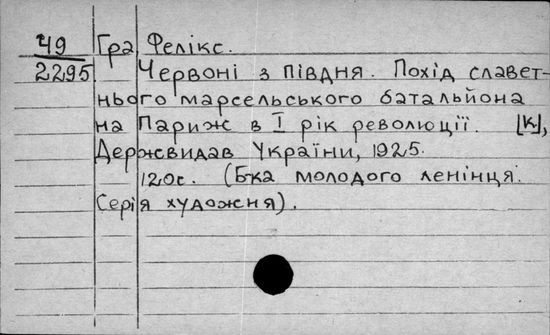 49 Гра, Фелікс.
2295 Червоні з півдня. Похід славет-
нього марсельського батальйона
на Париж в I рік революції. [К],
Держвидав України, 1925.
120с. (Б-ка молодого ленінця.
Серія художня).